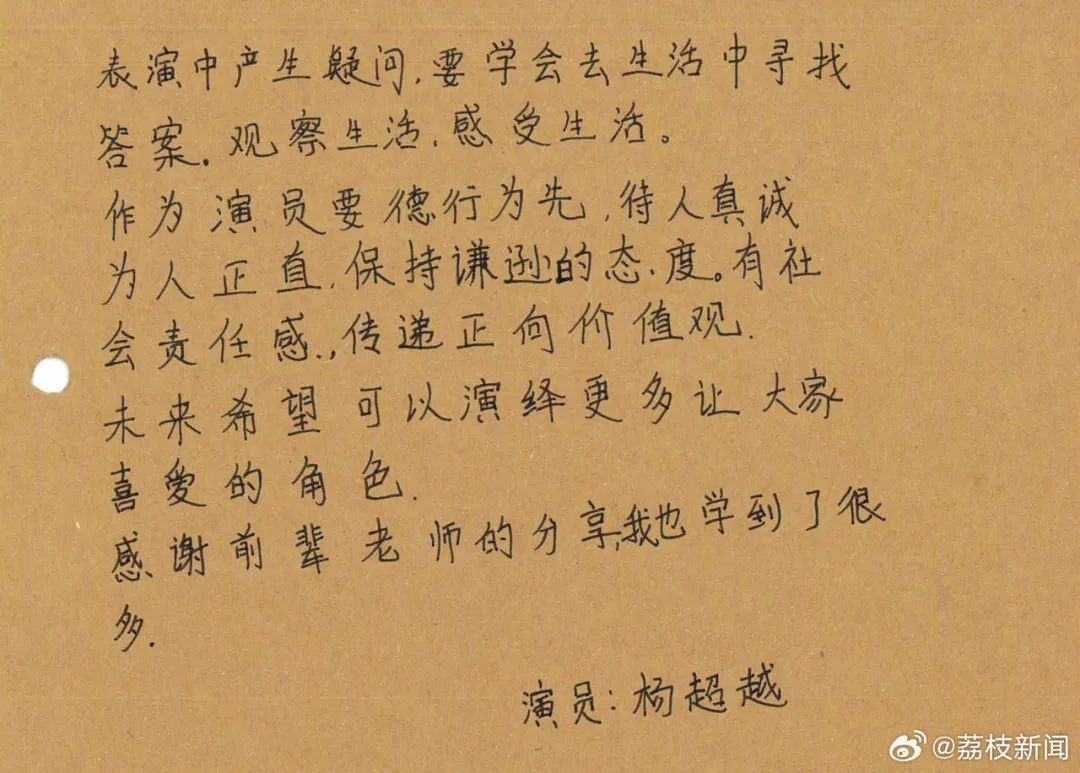 表演中产生疑问,要学会去生活中寻找
答案.观察生活,感受生活。
作为演员要德行为先,待人真诚
为人正直,保持谦逊的态度。有社
会责任感.,传递正向价值观.
未来希望可以演绎更多让大家
喜爱的角色.
感谢前辈老师的分享,我也学到了很
多.
演员:杨超越
@荔枝新闻